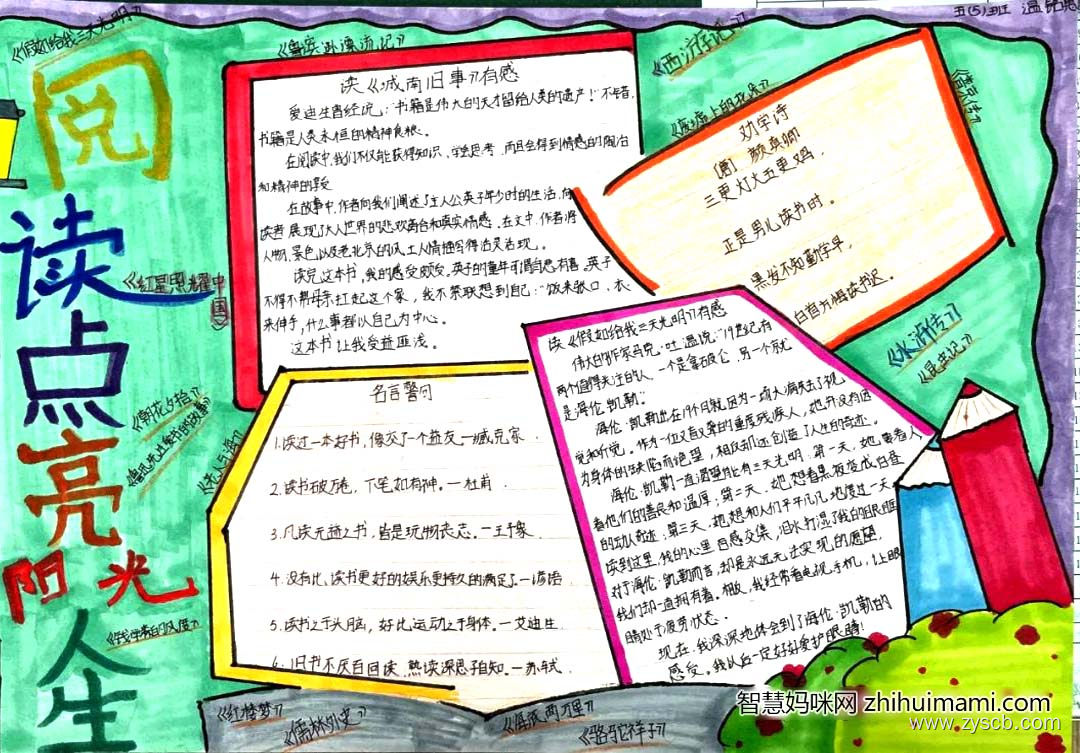 五(5)班 温
阅读点亮阳光人生
《假如给我三天光明》
《鲁滨孙漂流记》
《西游记》
《红星照耀中国》
《朝花夕拾》
《老人与海》
《水浒传》
《昆虫记》
《红楼梦》
《儒林外史》
《海底两万里》
《骆驼祥子》
读《城南旧事》有感
爱迪生曾经说:"书籍是伟大的天才留给人类的遗产!"不错,
书籍是人类永恒的精神食粮。
在阅读中,我们不仅能获得知识,学会思考,而且会得到情感的陶冶
和精神的享受
在故事中,作者向我们阐述了主人公英子年少时的生活,向
读者展现了大人世界的悲欢离合和真实情感。在文中,作者将
人物、景色以及老北京的风土人情描写得活灵活现。
读完这本书,我的感受颇多,英子的童年可谓有喜有
不得不帮母亲扛起这个家,我不禁联想到自己:"饭来张口,衣
来伸手,什么事都以自己为中心。
这本书让我受益匪浅。
劝学诗
[唐] 颜真卿
三更灯火五更鸡,
正是男儿读书时。
黑发不知勤学早,
白首方悔读书迟。
名言警句
1.读过一本好书,像交了个益友—臧克家
2.读书破万卷,下笔如有神。—杜甫
3.凡读无益之书,皆是玩物丧志。—王
4.没有比读书更好的娱乐更持久的满足了—
5.读书之于头脑,好比运动之于身体。—艾迪生
6.旧书不厌百回读,熟读深思子自知。—苏轼
读《假如给我三天光明》有感
伟大的作家马克·吐温说:"19世纪有
两个值得关注的人,一个是拿破仑,另一个就
是海伦·凯勒。"
海伦·凯勒出生19个月就因为一场大病失去了视
觉和听觉。作为一位又盲又聋的重度残疾人,她并没有因
为身体的缺陷而绝望,相反却还创造了人生的奇迹。
海伦·凯勒一直渴望能有三天光明:第一天,她要看人
看他们的善良和温厚;第二天,她想看黑夜变成白昼
的动人奇迹;第三天,她想和人们平平凡凡地度过一天
读到这里,我的心里百感交集,泪水打湿了我的眼眶
对于海伦·凯勒而言,却是永远无法实现的愿望。
我们却一直拥有着。相反,我经常看电视、手机,让眼
睛处于疲劳状态。
现在,我深深地体会到了海伦·凯勒的
感受。我从后一定好好爱护眼睛!
智慧妈咪网 zhihuimami.com
www.zyscb.com